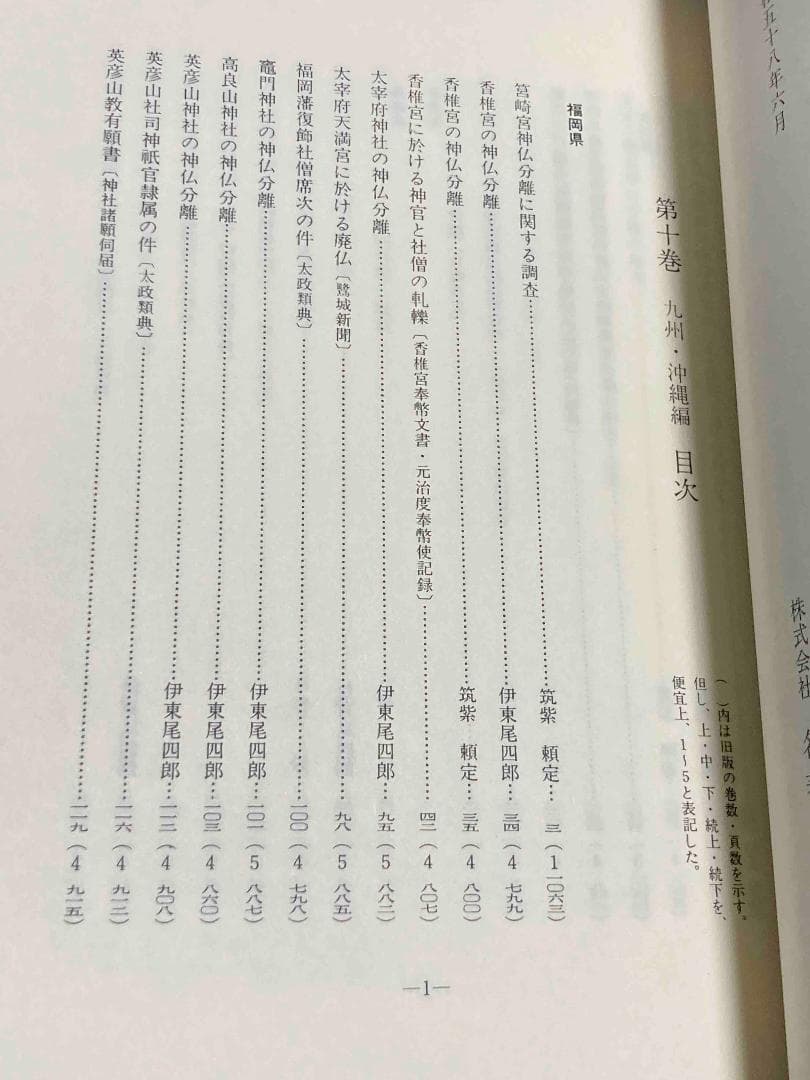 五十八年六月
株式会社
第十巻 九州・沖縄編 目次
( )内は旧版の巻数・頁数を示す。
但し、上・中・下・続上・続下を、
便宜上、1~5と表記した。
福岡県
筥崎宮神仏分離に関する調査……筑紫 頼定… 三(1 一〇六三)
香椎宮の神仏分離……伊東尾四郎… 三四(4 七九九)
香椎宮の神仏分離……筑紫 頼定… 三五(4 八〇〇)
香椎宮に於ける神官と社僧の軋轢〔香椎宮奉幣文書・元治度奉幣使記録〕…… 四二(4 八〇七)
太宰府神社の神仏分離……伊東尾四郎… 九五(5 八八二)
太宰府天満宮に於ける廃仏〔鷺城新聞〕…… 九八(5 八八五)
福岡藩復飾社僧席次の件〔太政類典〕……一〇〇(4 七九八)
竈門神社の神仏分離……伊東尾四郎…一〇一(5 八八七)
高良山神社の神仏分離……伊東尾四郎…一〇三(4 八六〇)
英彦山神社の神仏分離……伊東尾四郎…一一二(4 九〇八)
英彦山社司神祇官隷属の件〔太政類典〕……一一六(4 九一二)
英彦山教有願書〔神社諸願伺届〕……一一九(4 九一五)
—1—